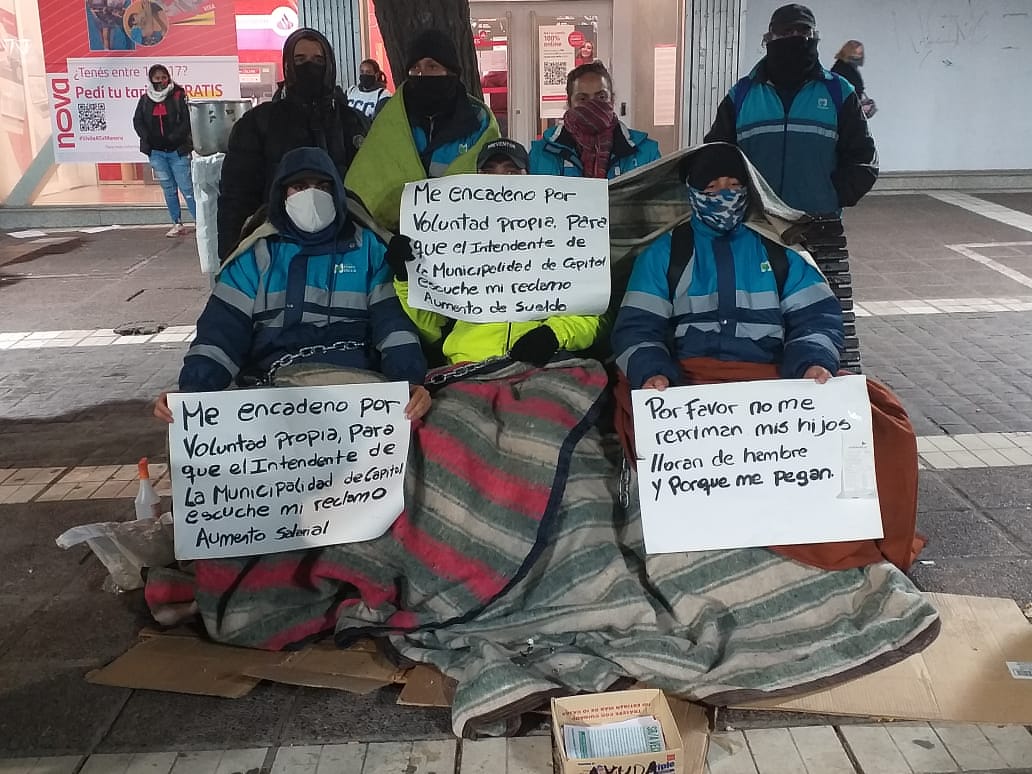 ¿Tenés entre 13 y 17?
Pedí tu tarjeta GRATIS
nova
VISA
100%
online
PREVENTOR
Me encadeno por
Voluntad propia. Para
que el Intendente de
la Municipalidad de Capital
escuche mi reclamo
Aumento de Sueldo
Me encadeno por
Voluntad propia, Para
que el Intendente de
La Municipalidad de Capital
escuche mi reclamo
Aumento Salarial
Por Favor no me
repriman mis hijos
lloran de hambre
y Porque me pegan.
AYUDA